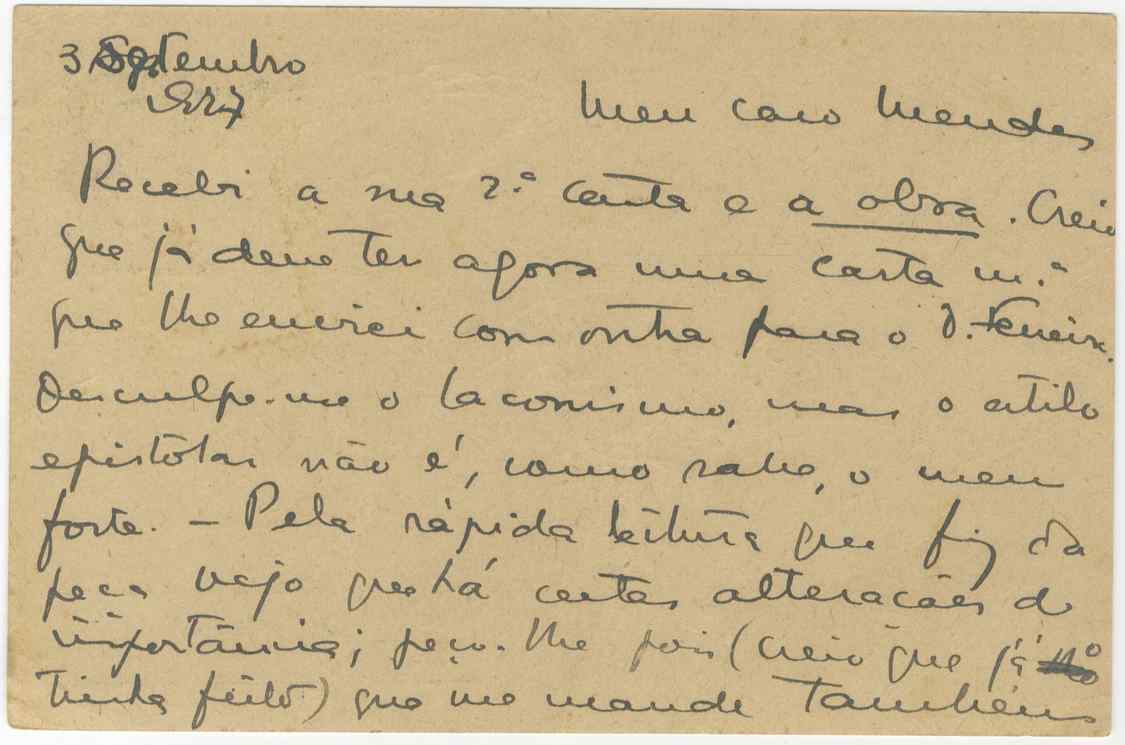 3 Setembro
927
Meu caro Mendes
Recebi a sua 2.ª carta e a obra. Creio
que já deve ter agora uma carta m.ª
que lhe enviei com outra para o D. Ferreira.
Desculpe-me o laconismo, mas o estilo
epistolar não é, como sabe, o meu
forte. – Pela rápida leitura que fiz da
peça vejo que há certas alterações de
importância; peço-lhe pois (creio que já o
tinha feito) que me mande também